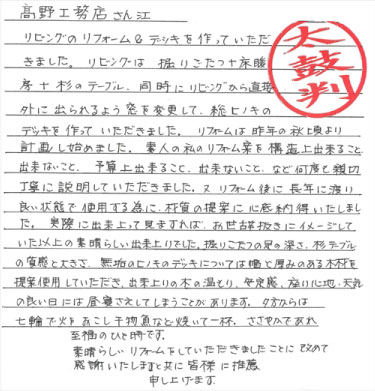 高野工務店さん江
太鼓判
リビングのリフォーム&デッキを作っていただ
きました。リビングは掘りごたつ+床暖
房+杉のテーブル、同時にリビングから直接
外に出られるよう窓を変更して、総ヒノキの
デッキを作っていただきました。リフォームは昨年の秋頃より
計画し始めました。素人の私のリフォーム案を構造上出来ること
出来ないこと、予算上出来ること、出来ないこと、など何度も親切
丁寧に説明していただきました。又リフォーム後に長年に渡り
良い状態で使用する為に、材質の提案に心底納得いたしまし
た。実際に出来上って見ますれば、お世辞抜きにイメージして
いた以上の素晴らしい出来上りでした。掘りごたつの足の深さ、杉テーブル
の質感と大きさ、無垢のヒノキのデッキについては幅と厚みのある木材を
提案使用していただき、出来上りの木の温もり、安定感、座り心地・天気
の良い日には昼寝さえしてしまうことがあります。夕方からは
七輪で火をおこし干物魚など焼いて一杯。ささやかであれ
至福のひと時です。
素晴らしいリフォームをしていただきましたことに改めて
感謝いたしますと共に皆様に推薦
申し上げます。